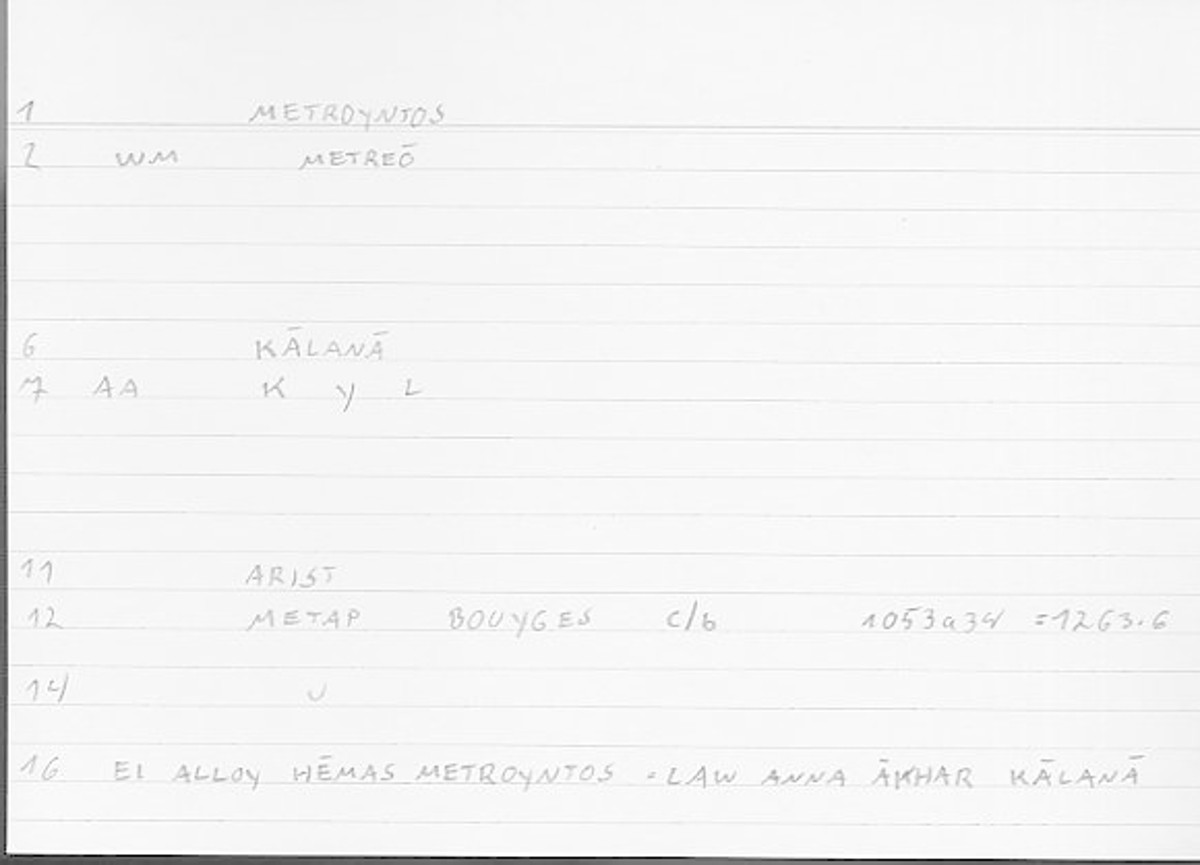 1 METROYNTOS
2 WM METREŌ
6 KĀLANĀ
7 AA K Y L
11 ARIST
12 METAP BOUYGES C/b 1053a34 =1263.6
14 U
16 EI ALLOY HĒMAS METROYNTOS = LAW ANNA ĀKHAR KĀLANĀ